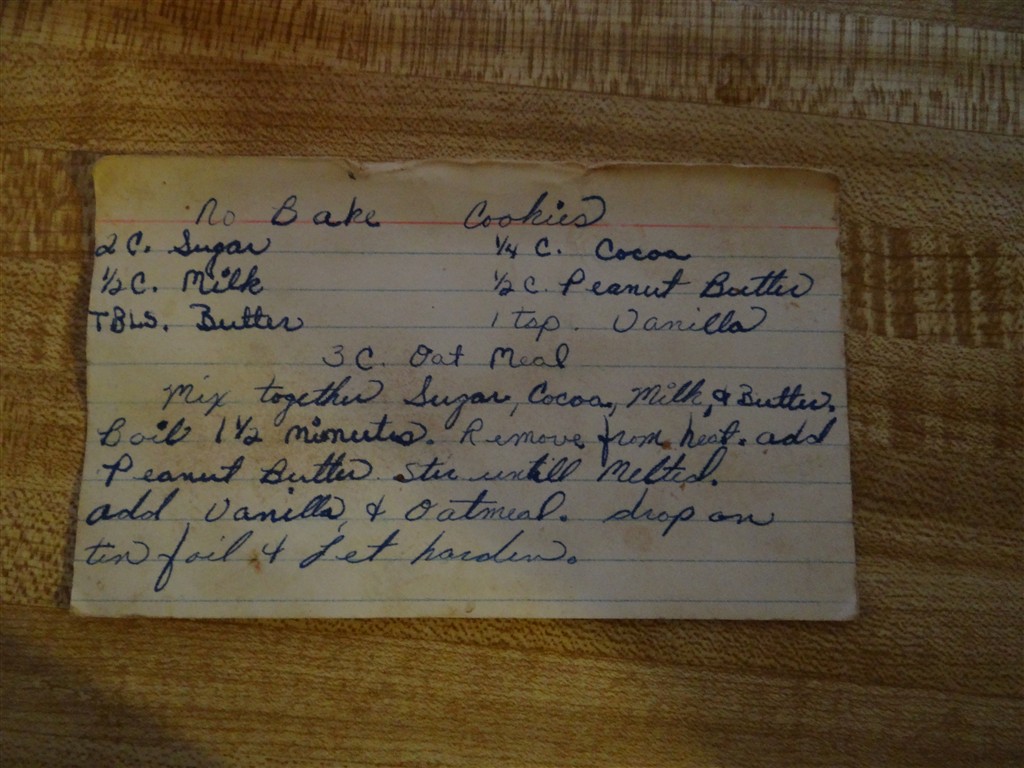 No Bake Cookies
2 C. Sugar 1/4 C. Cocoa
1/2 C. Milk 1/2 C Peanut Butter
TBLS. Butter 1 tsp. Vanilla
3 C. Oat Meal
Mix together Sugar, Cocoa, Milk, & Butter.
Boil 1 1/2 minutes. Remove from heat. add
Peanut Butter stir untill Melted.
add Vanilla, & Oatmeal. drop on
tin foil & Let harden.